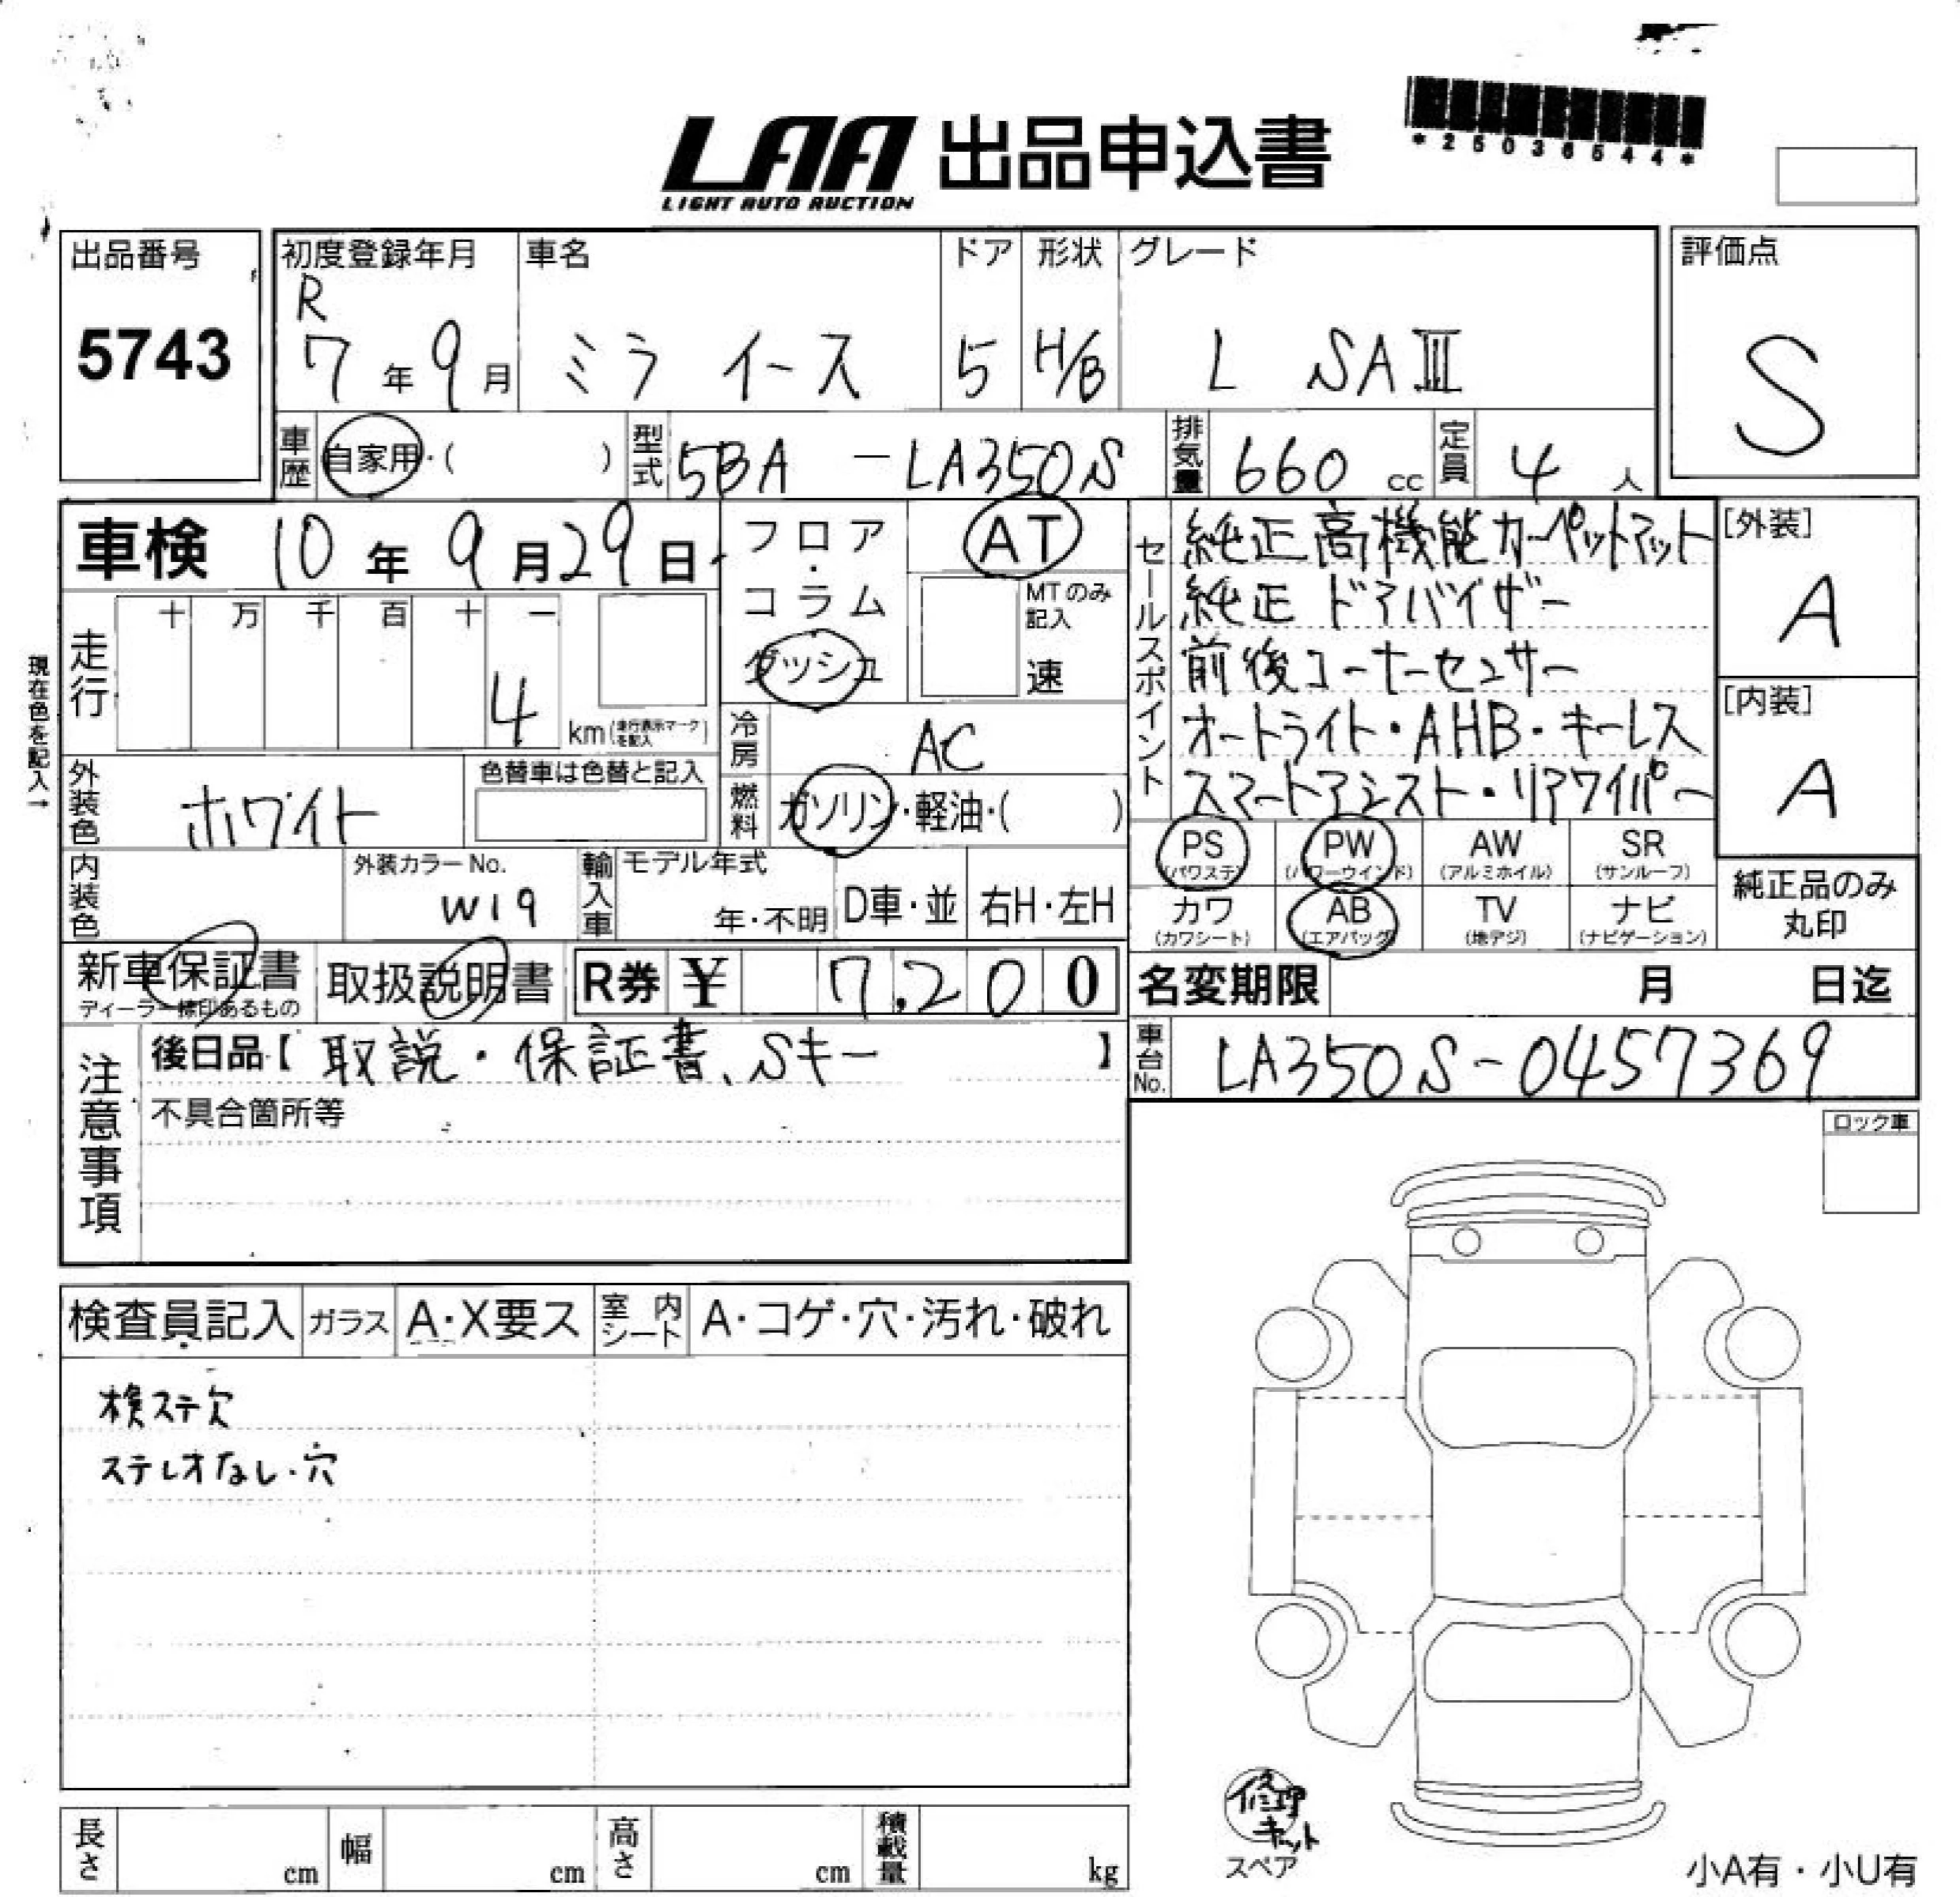 LAA 出品申込書
LIGHT AUTO AUCTION
*25036544*
出品番号
5743
初度登録年月
R
7年9月
車名
ミラ イース
ドア
5
形状
H/B
グレード
L SAⅢ
評価点
S
車歴
自家用・( )
型式
5BA - LA350S
排気量
660 cc
定員
4人
車検 10年9月29日
フロア・コラム
ダッシュ
AT
MTのみ記入
速
走行
十 万 千 百 十 一
4
km(走行表示マークを記入)
現在色を記入→
冷房
AC
外装色
ホワイト
色替車は色替と記入
燃料
ガソリン・軽油・( )
内装色
外装カラーNo.
W19
輸入車
モデル年式
年・不明
D車・並
右H・左H
セールスポイント
純正高機能カーペットマット
純正ドアバイザー
前後コーナーセンサー
オートライト・AHB・キーレス
スマートアシスト・リアワイパー
[外装]
A
[内装]
A
PS (パワステ)
PW (パワーウインド)
AW (アルミホイル)
SR (サンルーフ)
カワ (カワシート)
AB (エアバッグ)
TV (地デジ)
ナビ (ナビゲーション)
純正品のみ
丸印
新車保証書
ディーラー捺印あるもの
取扱説明書
R券 ¥ 7,200
名変期限 月 日迄
注意事項
後日品【取説・保証書、Sキー】
不具合箇所等
車台No.
LA350S-0457369
ロック車
検査員記入
ガラス
A・X要ス
室内シート
A・コゲ・穴・汚れ・破れ
検ステ欠
ステレオなし・穴
修理キット
スペア
小A有・小U有
長さ cm
幅 cm
高さ cm
積載量 kg